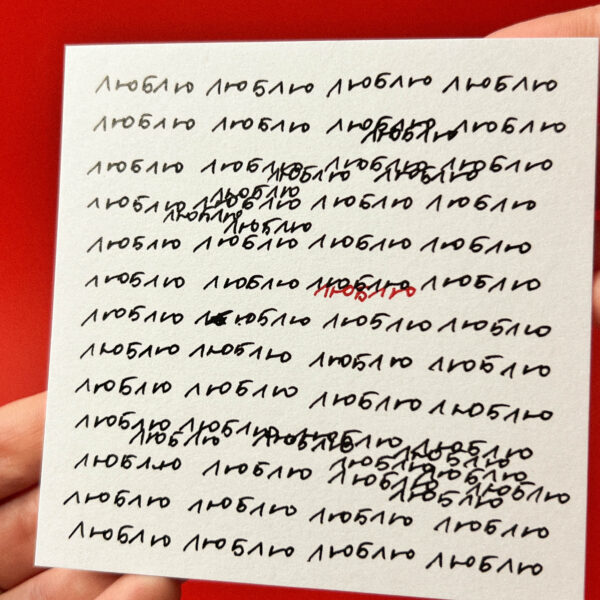 люблю люблю люблю люблю
люблю люблю люблю люблю
люблю
люблю люблю люблю люблю
люблю люблю
люблю
люблю люблю люблю люблю
люблю
люблю
люблю люблю люблю люблю
люблю люблю люблю люблю
люблю
люблю люблю люблю люблю
люблю люблю люблю люблю
люблю люблю люблю люблю
люблю люблю люблю люблю
люблю люблю
люблю люблю
люблю люблю люблю
люблю люблю
люблю люблю
люблю люблю люблю люблю
люблю люблю люблю люблю